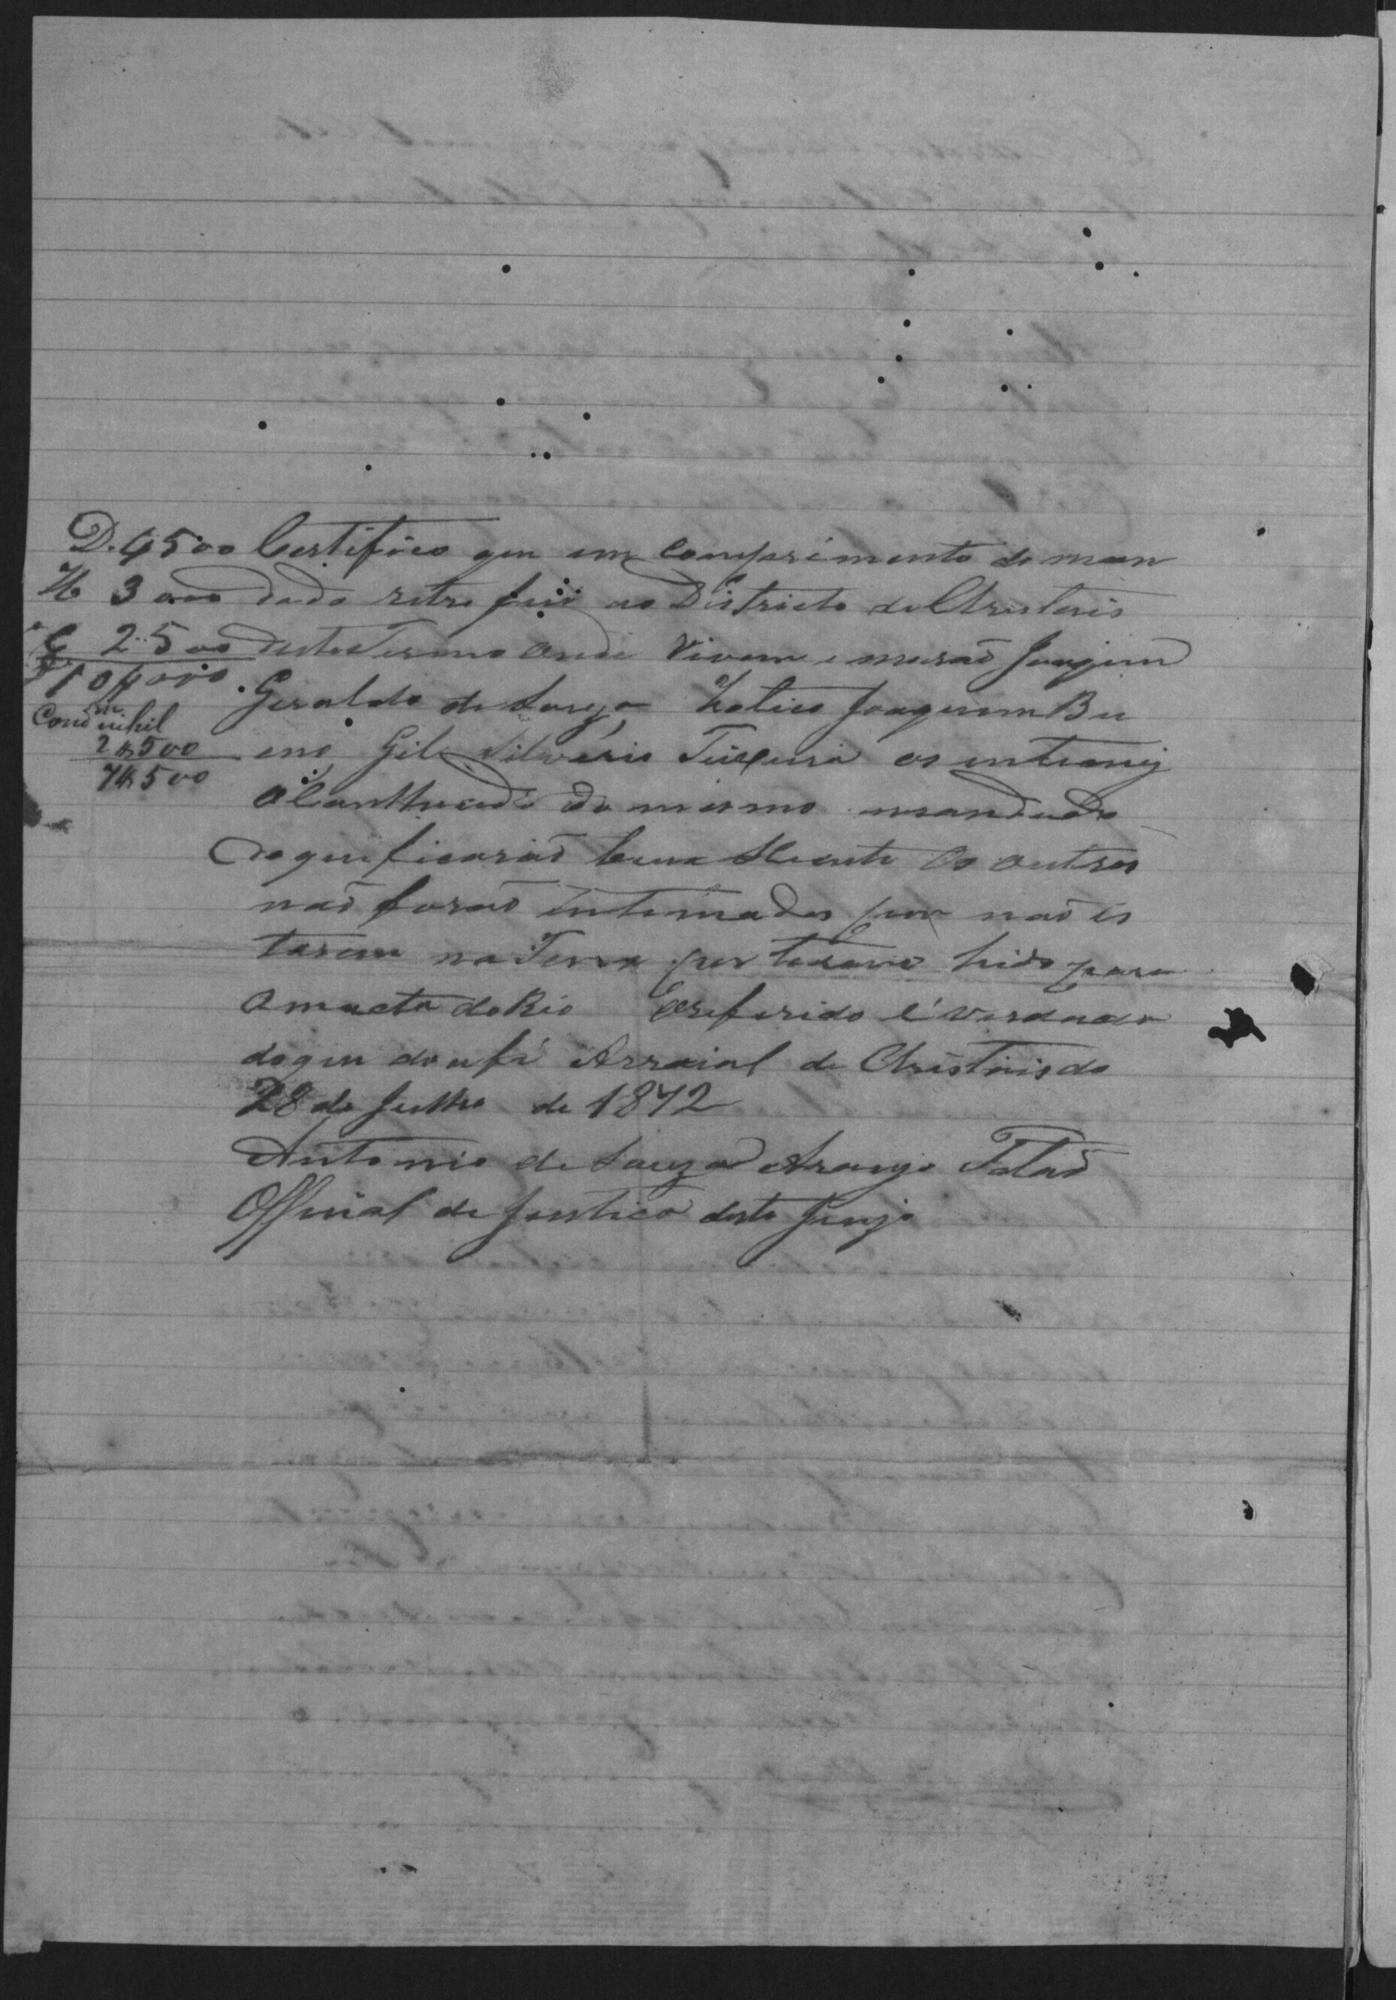 D. 4500 Certifico que em comprimento do man
H 3000 dado retro fui ao Districto de Christinis
C 2500 deste Termo onde vivem e morao Joaquim
10$000 Geraldo de Souza Joaquim Bu
Cond.m nihil
2$500 eno Gil Silverio Teixeira os intimei
7$500
do mesmo mandado
do que ficarão bem Os outros
naõ foraõ intimados por naõ es
tarem na Terra por terem hido para
a macta do Rio O referido é verdade
do que dou fé Arraial de Christinis do
28 de Julho de 1872
Antonio de Souza Araujo
Official de Justica deste Juizo